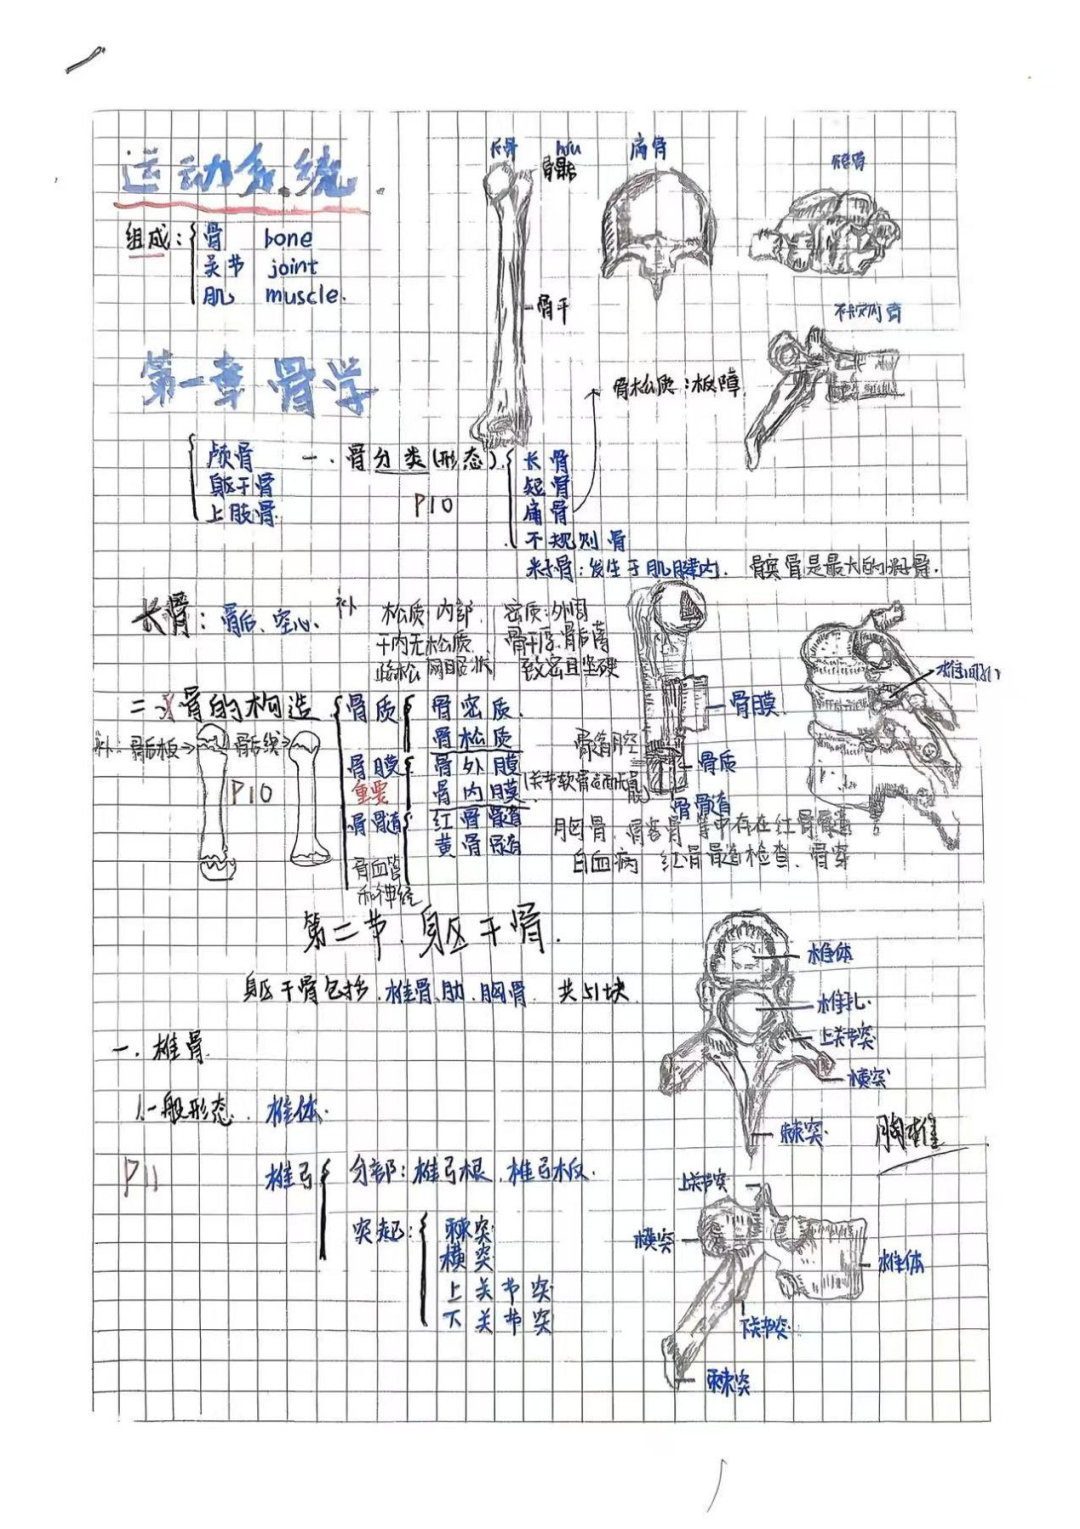 运动系统.
组成: 骨 bone
关节 joint
肌 muscle.
长骨
骨骺
骨干
扁骨
短骨
不规则骨
第一章 骨学
颅骨
躯干骨
上肢骨
一、骨分类(形态)
P10
长骨
短骨
扁骨
不规则骨
骨松质:板障
籽骨:发生于肌腱内. 髌骨是最大的籽骨.
长骨: 骨后、空心.
补 松质 内部. 密质:外周
干内无松质.
网眼状 致密且坚硬
二、骨的构造
补: 骨后板 骨后线
P10
骨质 骨密质.
骨松质
骨膜 骨外膜
重要 骨内膜
骨髓 红骨髓
黄骨髓
骨血管
和神经
骨膜
骨髓腔
骨质
骨骨髓
胸骨、骨 等中存在红骨髓
白血病 红骨髓检查、骨穿
第二节、躯干骨.
躯干骨包括、椎骨、肋、胸骨. 共51块.
一、椎骨
1.一般形态. 椎体.
P11
椎弓 分部: 椎弓根. 椎弓板.
突起: 棘突
横突
上关节突
下关节突
椎体
椎孔.
上关节突
横突
棘突
胸椎
上关节突
横突
椎体
下关节突
棘突